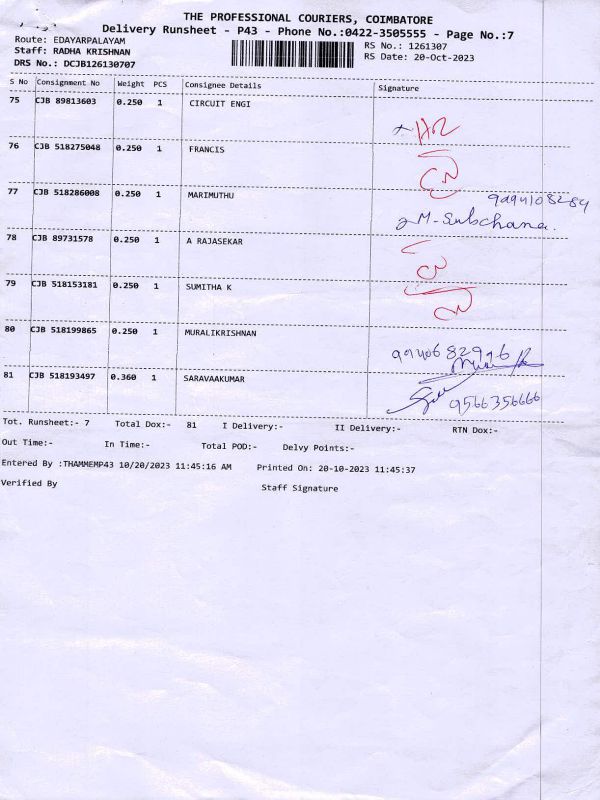 THE PROFESSIONAL COURIERS, COIMBATORE
Delivery Runsheet - P43 - Phone No.:0422-3505555 - Page No.:7
Route: EDAYARPALAYAM
RS No.: 1261307
Staff: RADHA KRISHNAN
RS Date: 20-Oct-2023
DRS No.: DCJB126130707
S No Consignment No Weight PCS Consignee Details Signature
75 CJB 89813603 0.250 1 CIRCUIT ENGI
76 CJB 518275048 0.250 1 FRANCIS
77 CJB 518286008 0.250 1 MARIMUTHU
M-Subchana.
78 CJB 89731578 0.250 1 A RAJASEKAR
79 CJB 518153181 0.250 1 SUMITHA K
80 CJB 518199865 0.250 1 MURALIKRISHNAN
81 CJB 518193497 0.360 1 SARAVAAKUMAR
9566356666
Tot. Runsheet:- 7 Total Dox:- 81 I Delivery:- II Delivery:- RTN Dox:-
Out Time:- In Time:- Total POD:- Delvy Points:-
Entered By :THAMMEMP43 10/20/2023 11:45:16 AM Printed On: 20-10-2023 11:45:37
Verified By Staff Signature